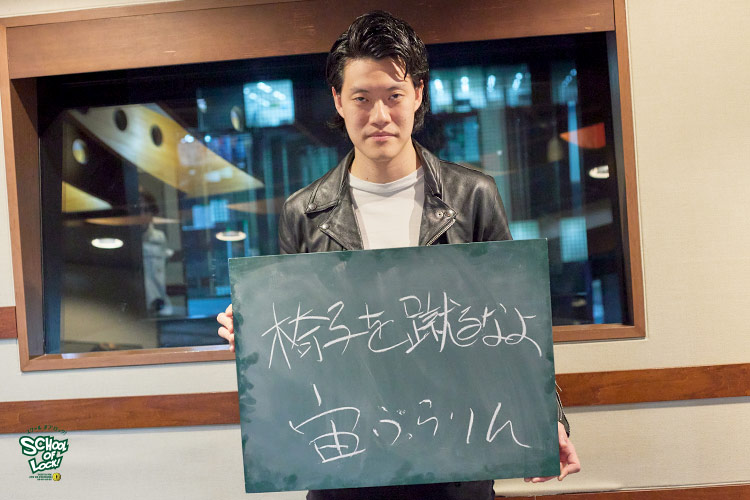 椅子を蹴るなよ
宙ぶらりん
SCHOOL
OF
LOCK!